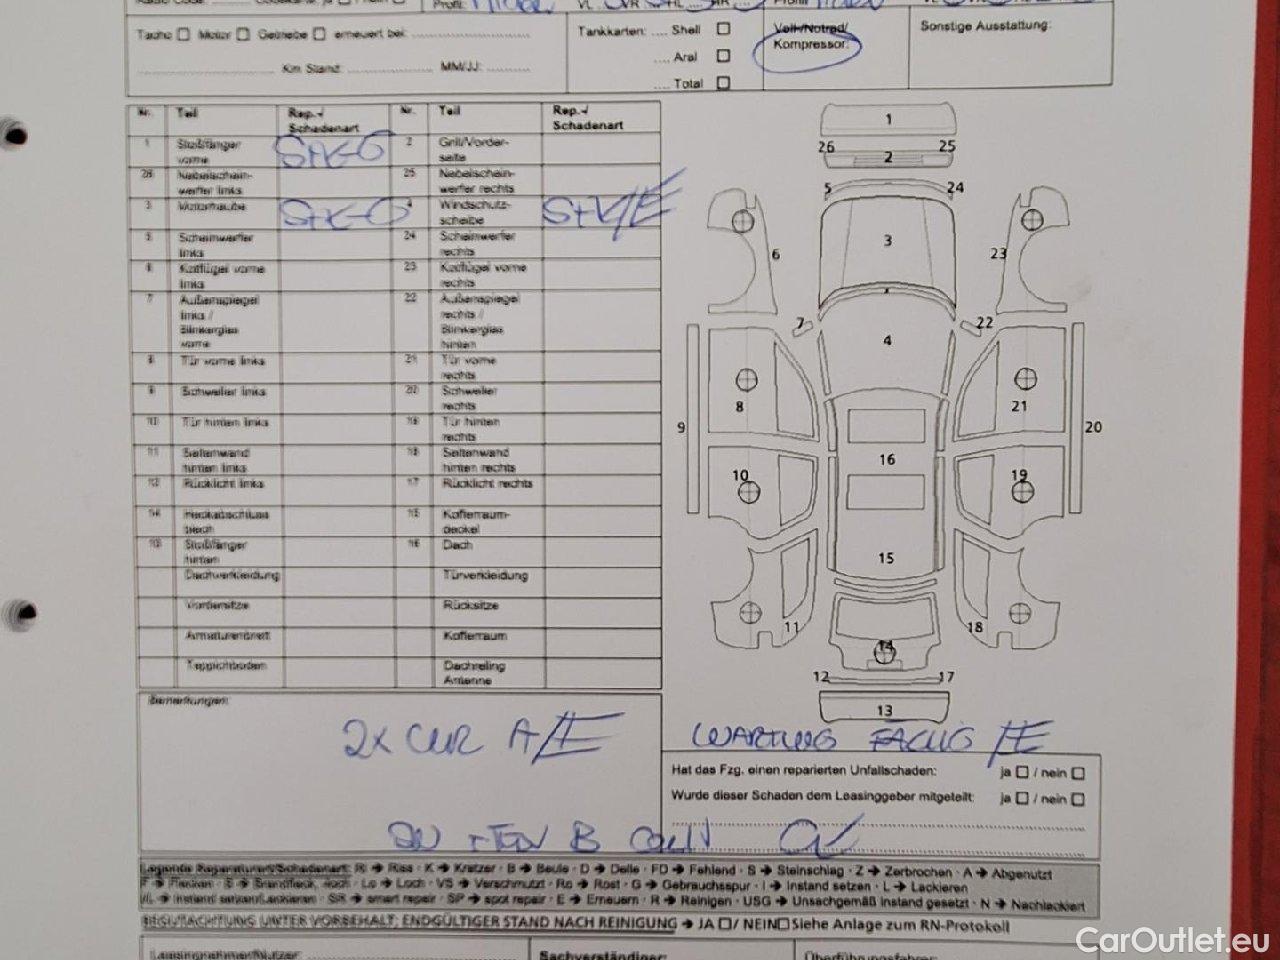 Tacho Motor Getriebe erneuert bei:
Km Stand: MM/JJ:
Tankkarten: .... Shell
.... Aral
.... Total
Voll-/Notrad/
Kompressor:
Sonstige Ausstattung:
Nr. Teil Rep.-/ Schadenart Nr. Teil Rep.-/ Schadenart
1 Stoßfänger vorne 2 Grill/Vorder-seite
26 Nebelschein-werfer links 25 Nebelschein-werfer rechts
3 Motorhaube 4 Windschutz-scheibe
5 Scheinwerfer links 24 Scheinwerfer rechts
6 Kotflügel vorne links 23 Kotflügel vorne rechts
7 Außenspiegel links / Blinkerglas vorne 22 Außenspiegel rechts / Blinkerglas hinten
8 Tür vorne links 21 Tür vorne rechts
9 Schweller links 20 Schweller rechts
10 Tür hinten links 19 Tür hinten rechts
11 Seitenwand hinten links 18 Seitenwand hinten rechts
12 Rücklicht links 17 Rücklicht rechts
14 Heckabschluss blech 15 Kofferraum-deckel
13 Stoßfänger hinten 16 Dach
Dachverkleidung Türverkleidung
Vordersitze Rücksitze
Armaturenbrett Kofferraum
Teppichboden Dachreling Antenne
1
26 2 25
5 24
6 3 23
7 22
4
8 21
9 20
10 16 19
15
11 14 18
12 17
13
Bemerkungen:
2x CUR A/E
WARTUNG FÄLLIG /E
Hat das Fzg. einen reparierten Unfallschaden: ja / nein
Wurde dieser Schaden dem Leasinggeber mitgeteilt: ja / nein
Legende Reparaturen/Schadenart: Ri → Riss · K → Kratzer · B → Beule · D → Delle · FD → Fehlend · S → Steinschlag · Z → Zerbrochen · A → Abgenutzt
F → Flecken · Lo → Loch · VS → Verschmutzt · Ro → Rost · G → Gebrauchsspur · I → Instand setzen · L → Lackieren
I/L → Instand setzen/Lackieren · SR → smart repair · SP → spot repair · E → Erneuern · R → Reinigen · USG → Unsachgemäß instand gesetzt · N → Nachlackiert
BEGUTACHTUNG UNTER VORBEHALT; ENDGÜLTIGER STAND NACH REINIGUNG → JA / NEIN Siehe Anlage zum RN-Protokoll
Leasingnehmer/Nutzer: Sachverständiger: Überführungsfahrer:
CarOutlet.eu